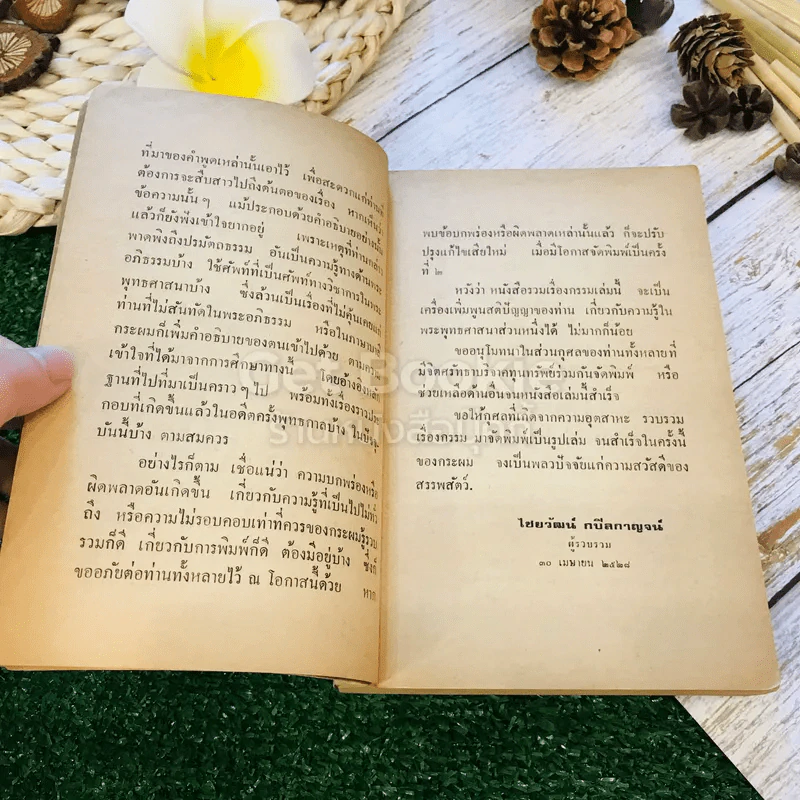 ที่มาของคำพูดเหล่านั้นเอาไว้ เพื่อสะดวกแก่ท่านที่
ต้องการจะสืบสาวไปถึงต้นตอของเรื่อง หากเห็นว่า
ข้อความนั้น ๆ แม้ประกอบด้วยคำอธิบายอย่างนั้น
แล้วก็ยังฟังเข้าใจยากอยู่ เพราะเหตุที่ท่านกล่าว
พาดพิงถึงปรมัตถธรรม อันเป็นความรู้ทางด้านพระ
อภิธรรมบ้าง ใช้ศัพท์ที่เป็นศัพท์ทางวิชาการในพระ
พุทธศาสนาบ้าง ซึ่งล้วนเป็นเรื่องที่ไม่คุ้นเคยแก่
ท่านที่ไม่สันทัดในพระอภิธรรม หรือในภาษาบาลี
กระผมก็เพิ่มคำอธิบายของตนเข้าไปด้วย ตามความ
เข้าใจที่ได้มาจากการศึกษาทางนี้ โดยอ้างอิงหลัก
ฐานที่ไปที่มาเป็นคราว ๆ ไป พร้อมทั้งเรื่องราวประ
กอบที่เกิดขึ้นแล้วในอดีตครั้งพุทธกาลบ้าง ในปัจจุ
บันนี้บ้าง ตามสมควร
อย่างไรก็ตาม เชื่อแน่ว่า ความบกพร่องหรือ
ผิดพลาดอันเกิดขึ้น เกี่ยวกับความรู้ที่เป็นไปไม่ทั่ว
ถึง หรือความไม่รอบคอบเท่าที่ควรของกระผมผู้รวบ
รวมก็ดี เกี่ยวกับการพิมพ์ก็ดี ต้องมีอยู่บ้าง ซึ่งก็
ขออภัยต่อท่านทั้งหลายไว้ ณ โอกาสนี้ด้วย หาก
พบข้อบกพร่องหรือผิดพลาดเหล่านั้นแล้ว ก็จะปรับ
ปรุงแก้ไขเสียใหม่ เมื่อมีโอกาสจัดพิมพ์เป็นครั้ง
ที่ ๒
หวังว่า หนังสือรวมเรื่องกรรมเล่มนี้ จะเป็น
เครื่องเพิ่มพูนสติปัญญาของท่าน เกี่ยวกับความรู้ใน
พระพุทธศาสนาส่วนหนึ่งได้ ไม่มากก็น้อย
ขออนุโมทนาในส่วนกุศลของท่านทั้งหลายที่
มีจิตศรัทธาบริจาคทุนทรัพย์ร่วมกันจัดพิมพ์ หรือ
ช่วยเหลือด้านอื่นจนหนังสือเล่มนี้สำเร็จ
ขอให้กุศลที่เกิดจากความอุตสาหะ รวบรวม
เรื่องกรรม มาจัดพิมพ์เป็นรูปเล่ม จนสำเร็จในครั้งนี้
ของกระผม จงเป็นพลวปัจจัยแก่ความสวัสดีของ
สรรพสัตว์.
ไชยวัฒน์ กปิลกาญจน์
ผู้รวบรวม
๓๐ เมษายน ๒๕๒๘